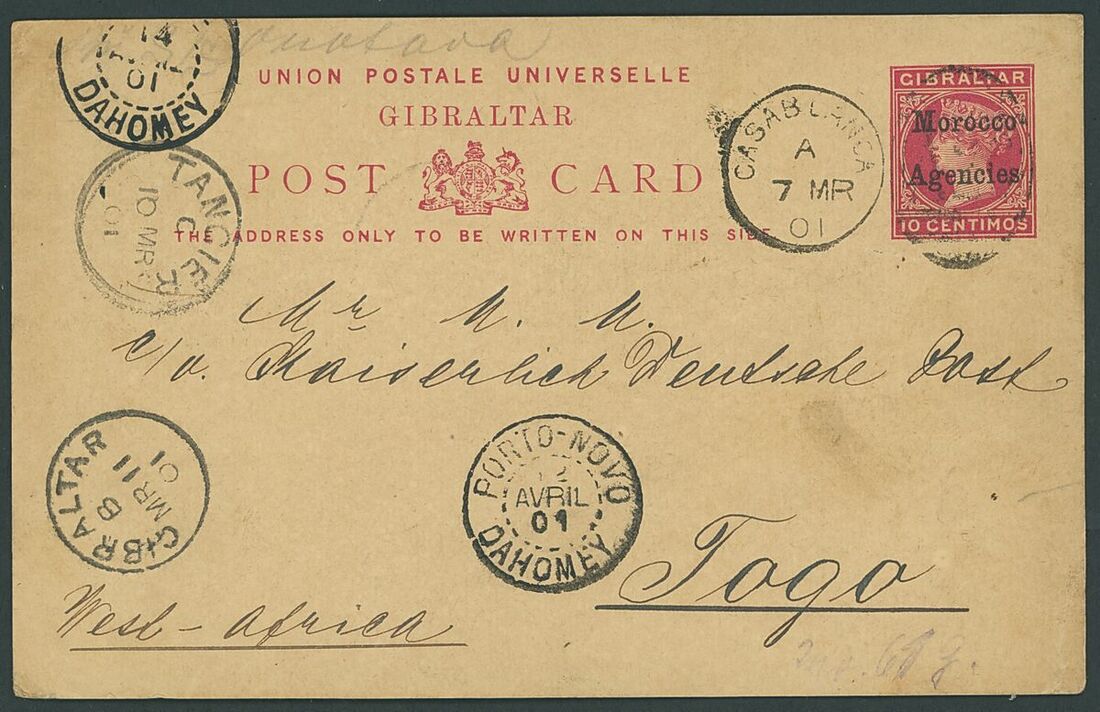 14
AVRIL
01
DAHOMEY
UNION POSTALE UNIVERSELLE
GIBRALTAR
POST CARD
THE ADDRESS ONLY TO BE WRITTEN ON THIS SIDE
GIBRALTAR
Morocco
Agencies
10 CENTIMOS
CASABLANCA
A
7 MR
01
TANGIER
C
10 MR
01
Mr M. M.
c/o. Kaiserlich Deutsche Post
GIBRALTAR
B
MR 11
01
PORTO-NOVO
12
AVRIL
01
DAHOMEY
Togo
West-Africa